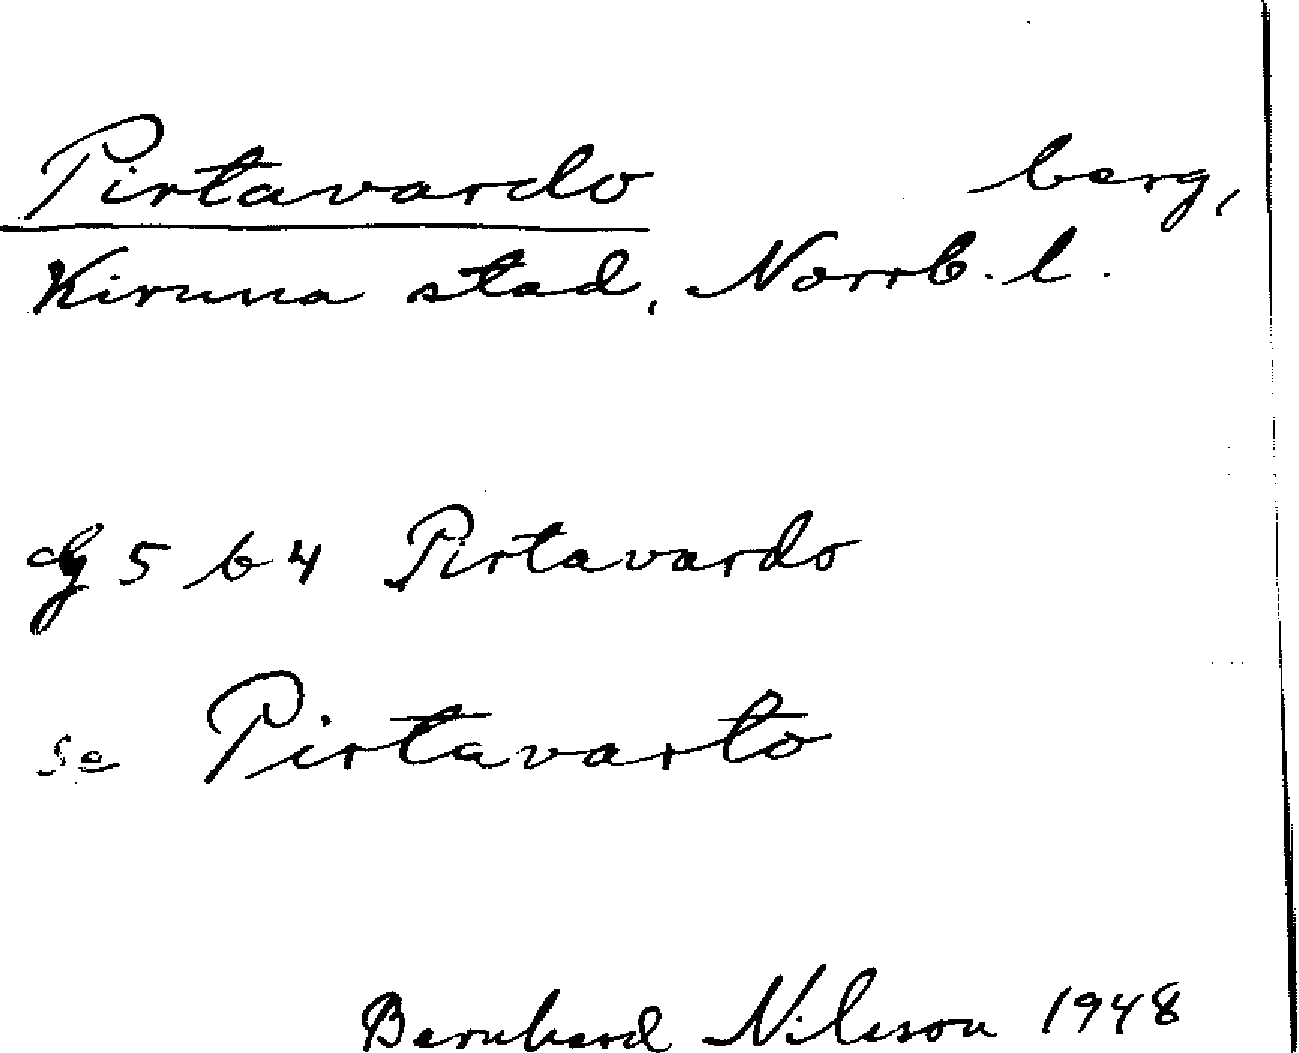 Pirtavardo berg,
Kiruna stad, Norrb. l.
dg 5 b 4 Pirtavardo
se Pirtavarto
Bernhard Nilsson 1948